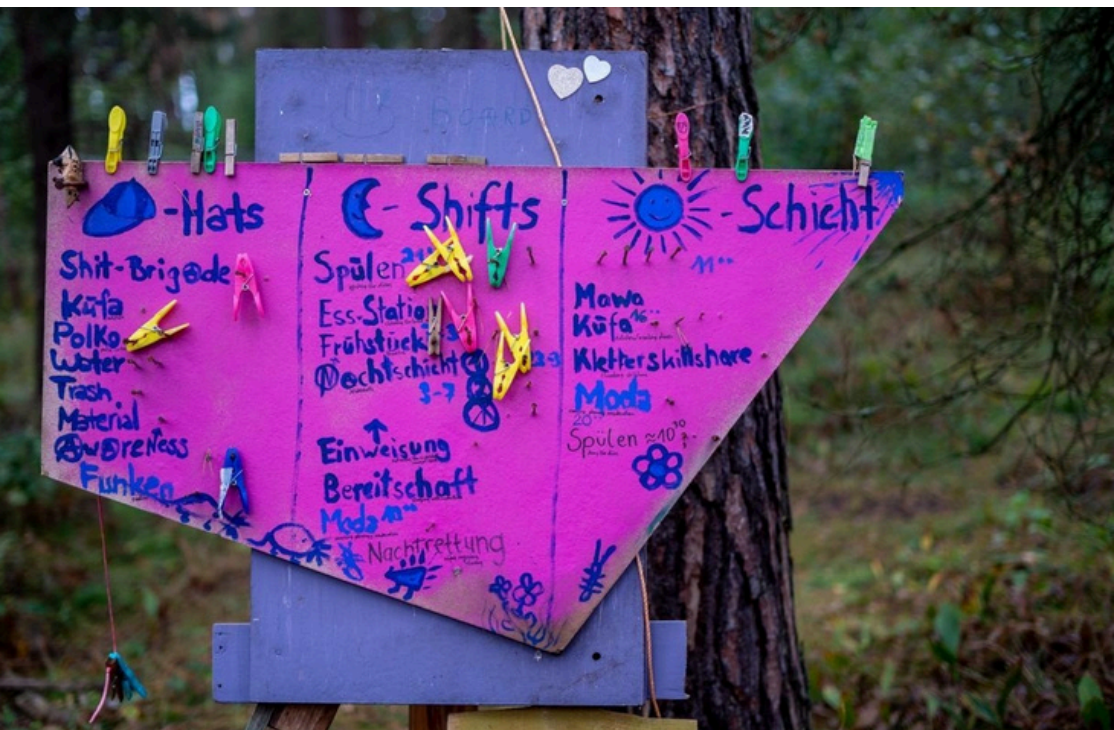 BOARD
-Hats
Shit-Brig@de
Küfa
Polko
Water
Trash
Material
AwareNess
Funken
- Shifts
Spülen
Ess-Statio
Frühstück
Nachtschicht
3-7
Einweisung
Bereitschaft
Moda 18°°
Nachtrettung
-Schicht
11°°
Mawa
Küfa 16°°
Kletterskillshare
Moda
20°°
Spülen ≈10³⁰